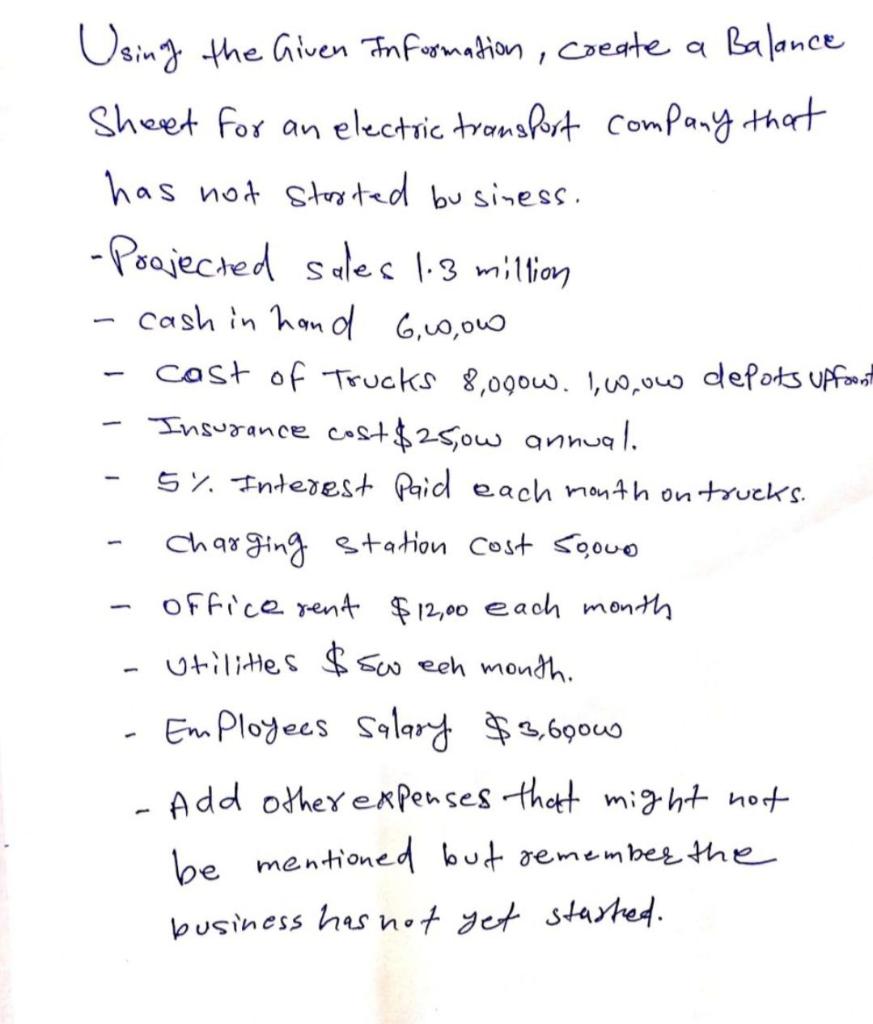 Using the Given Information, create a Balance
Sheet for an electric transport company that
has not started busines.
- Projected sales 1.3 million
- cash in hand 6,00,000
- Cost of Trucks 8,00,000. 1,00,000 depots upfront
- Insurance cost $25,000 annual.
- 5% Interest Paid each month on trucks.
- Charging station cost 50,000
- office rent $12,00 each month
- Utilities $500 eeh month.
- Employees salary $3,60,000
- Add other expenses that might not
be mentioned but remember the
business has not yet started.